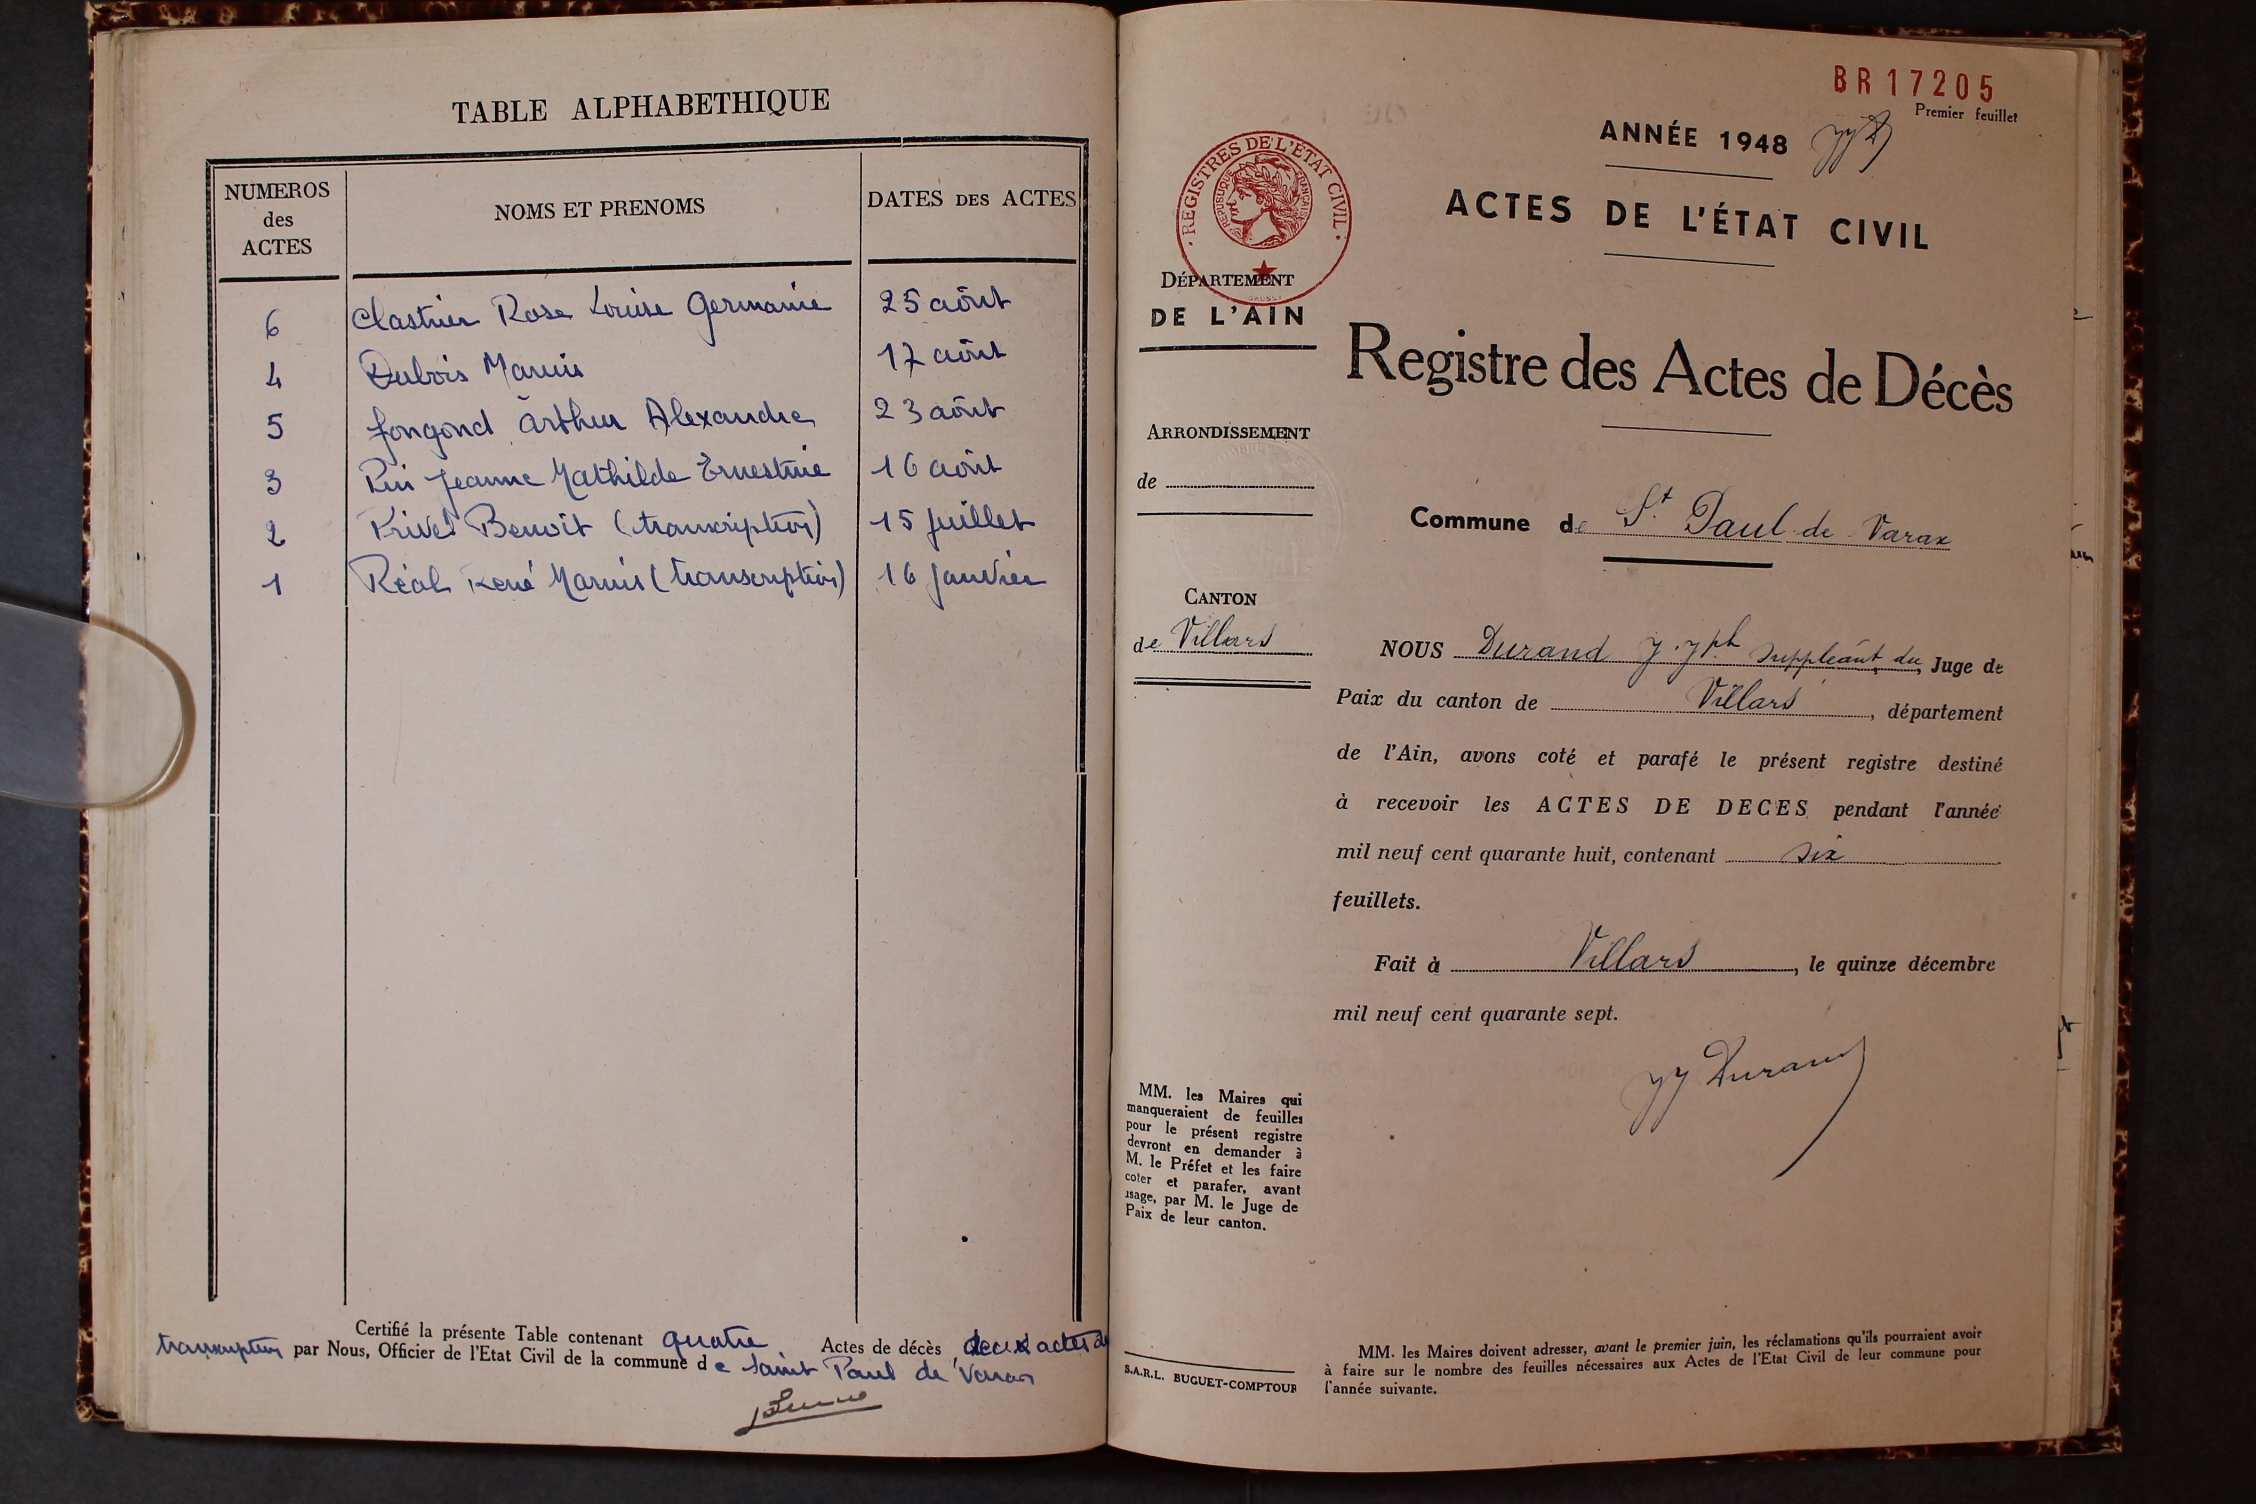 TABLE ALPHABETHIQUE
NUMEROS des ACTES
NOMS ET PRENOMS
DATES DES ACTES
6 Clastrier Rose Louise Germaine 25 août
4 Dubois Marius 17 août
5 Jongond Arthur Alexandre 23 août
3 Pin Jeanne Mathilde Ernestine 16 août
2 Privet Benoît (transcription) 15 juillet
1 Réal René Marius (transcription) 16 janvier
Certifié la présente Table contenant quatre Actes de décès deux actes de
transcription par Nous, Officier de l'Etat Civil de la commune de Saint Paul de Varax
BR17205
Premier feuillet
ANNÉE 1948
ACTES DE L'ÉTAT CIVIL
· REGISTRES DE L'ETAT CIVIL ·
REPUBLIQUE FRANÇAISE
DÉPARTEMENT
DE L'AIN
Registre des Actes de Décès
ARRONDISSEMENT
de
Commune de St Paul de Varax
CANTON
de Villars
NOUS Durand J. Jph suppléant du Juge de
Paix du canton de Villars, département
de l'Ain, avons coté et parafé le présent registre destiné
à recevoir les ACTES DE DECES pendant l'année
mil neuf cent quarante huit, contenant six
feuillets.
Fait à Villars, le quinze décembre
mil neuf cent quarante sept.
JJ Durand
MM. les Maires qui
manqueraient de feuilles
pour le présent registre
devront en demander à
M. le Préfet et les faire
coter et parafer, avant
usage, par M. le Juge de
Paix de leur canton.
S.A.R.L. BUGUET-COMPTOUR
MM. les Maires doivent adresser, avant le premier juin, les réclamations qu'ils pourraient avoir
à faire sur le nombre des feuilles nécessaires aux Actes de l'Etat Civil de leur commune pour
l'année suivante.